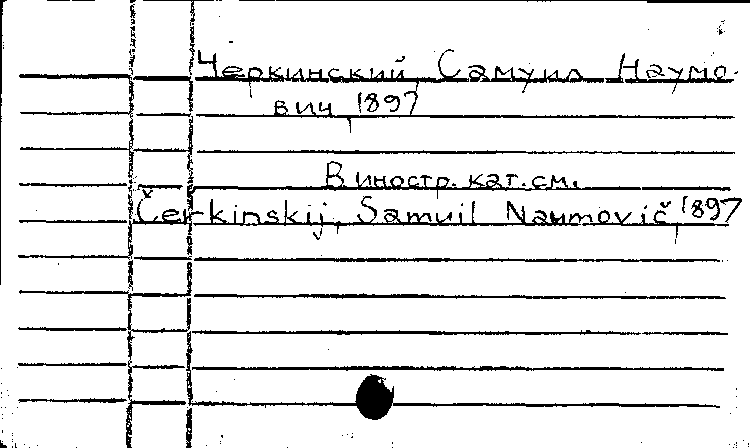 Черкинский, Самуил Наумо-
вич, 1897
В иностр. кат. см.
Čerkinskij, Samuil Naumovič, 1897